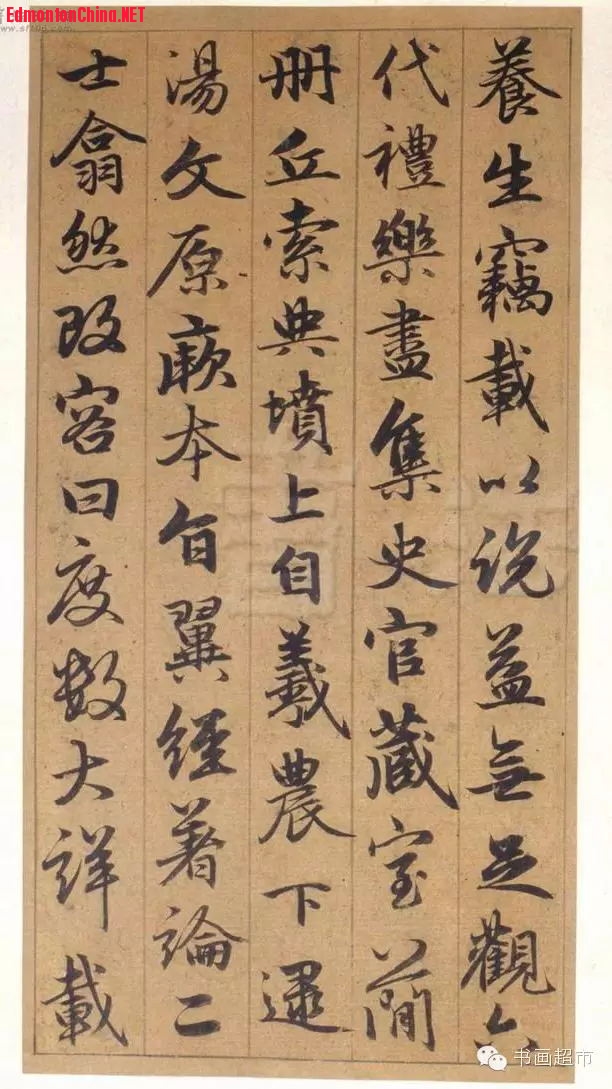 EdmontonChina.NET
養生竊載以说益無足觀六
代禮樂盡集史官藏室簡
冊丘索典墳上自羲農下逮
湯文原厥本旨翼經著論二
士翕然改容曰度数大详載
书画超市